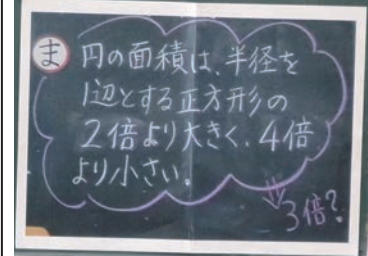 ま 円の面積は、半径を
1辺とする正方形の
2倍より大きく、4倍
より小さい。
⇓
3倍?